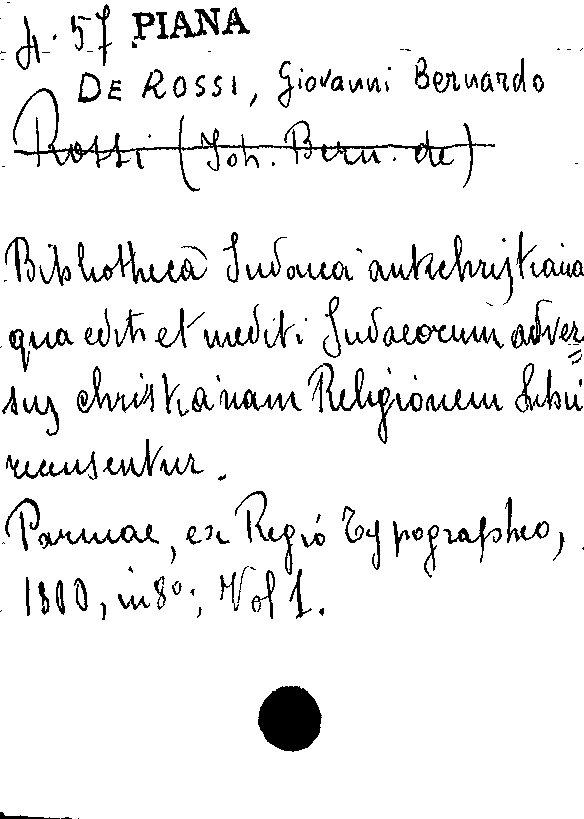 4. 57 PIANA
DE ROSSI, Giovanni Bernardo
Rossi (Joh. Bern. de)
Bibliotheca Judaica antichristiana
qua editi et inediti Judaeorum adver=
sus christianam Religionem Libri
recensentur.
Parmae, ex Regio Typographeo,
1800, in 8°; Vol 1.